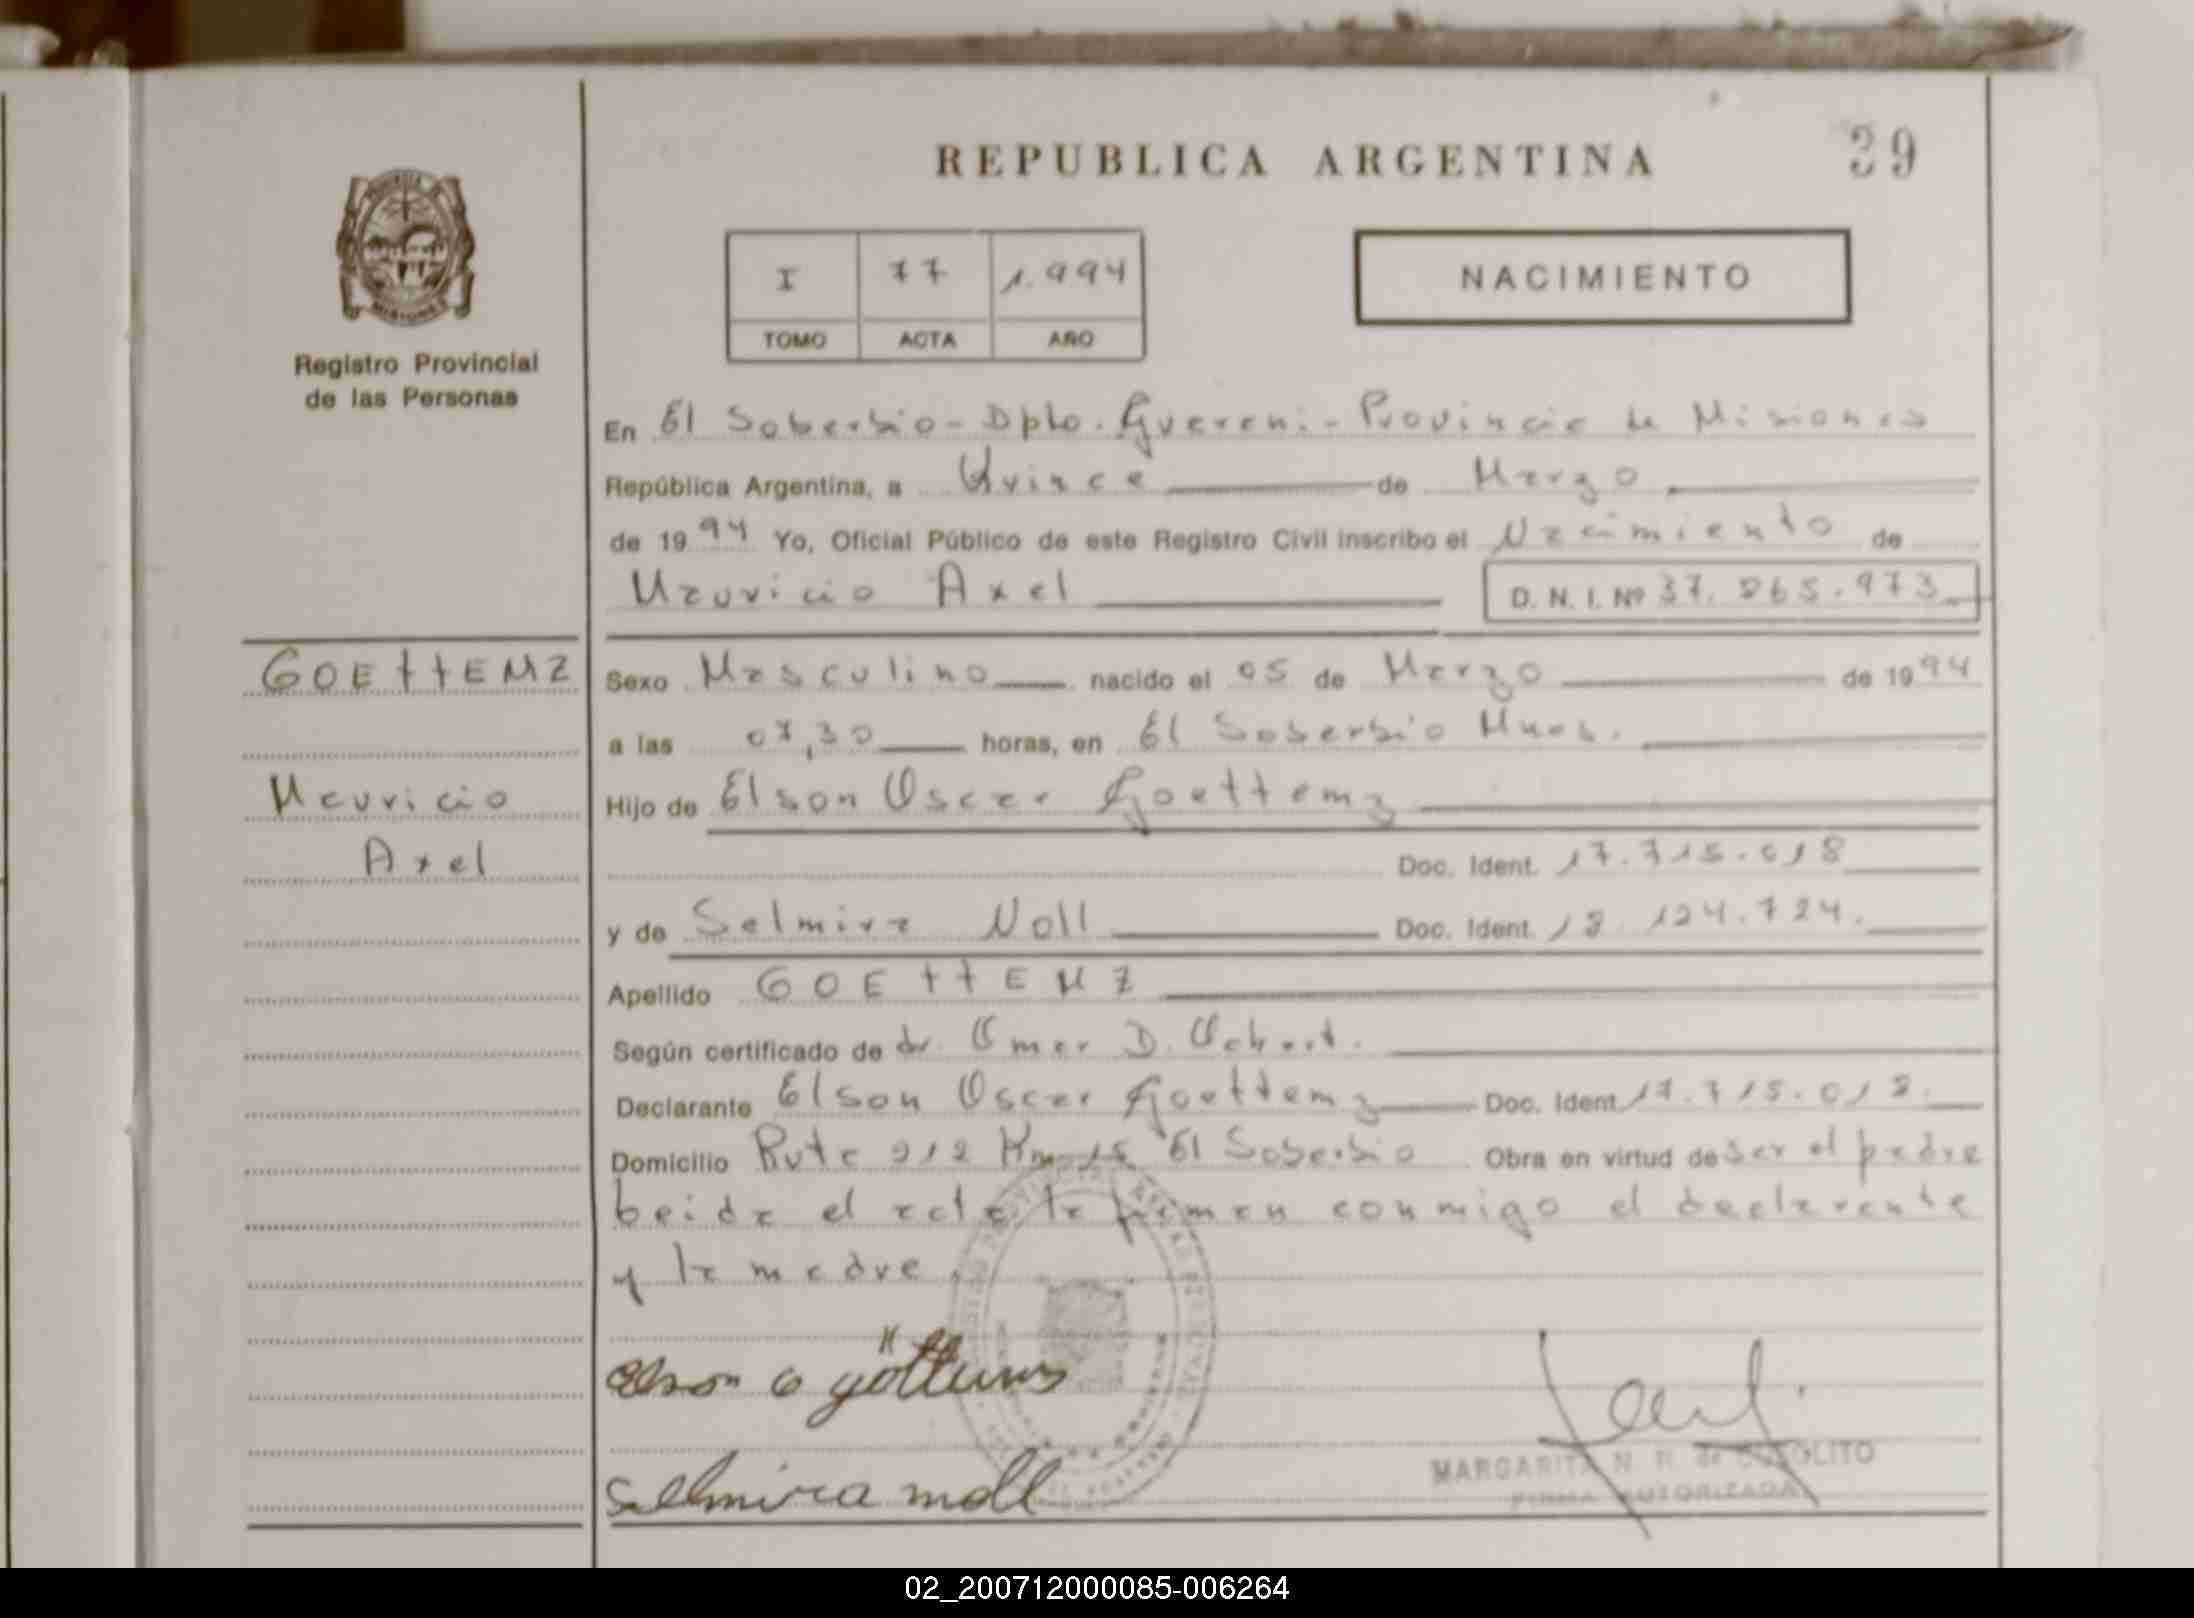 REPUBLICA ARGENTINA
39
I 77 1.994
TOMO ACTA AÑO
NACIMIENTO
MISIONES
Registro Provincial
de las Personas
En El Soberbio - Dpto. Guarani - Provincia de Misiones
República Argentina, a Quince de Marzo
de 1994 Yo, Oficial Público de este Registro Civil inscribo el Nacimiento de
Mauricio Axel D. N. I. Nº 37. .973
GOEttEMZ
Mauricio
Axel
Sexo Masculino nacido el 05 de Marzo de 1994
a las 07,30 horas, en El Soberbio Mnes.
Hijo de Elson Oscar Goettemz
Doc. Ident. 17.715.018
y de Selmira Noll Doc. Ident. 18.124.724.
Apellido GOEttEMZ
Según certificado de dr. Omar D.
Declarante Elson Oscar Goettemz Doc. Ident. 17.715.018.
Domicilio Ruta 212 Km 15 El Soberbio Obra en virtud de ser el padre
Leida el acta la firman conmigo el declarante
y la madre.
Selmira noll
MARGARITA N. R. de
FIRMA AUTORIZADA
02_200712000085-006264